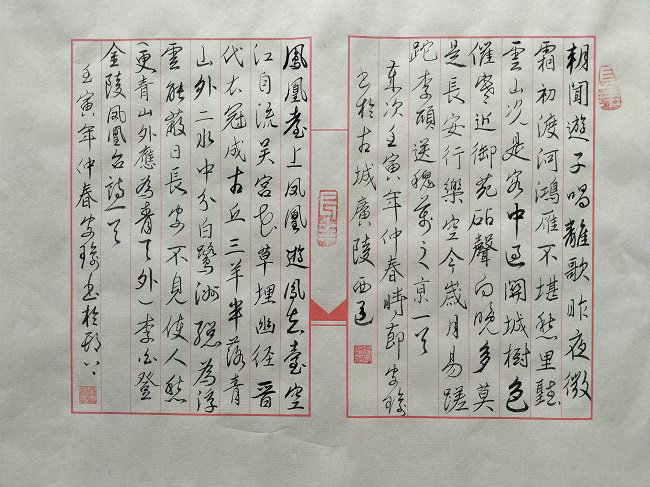 朝聞遊子唱離歌昨夜微
霜初渡河鴻雁不堪愁里聽
雲山況是客中過關城樹色
催寒近御苑砧聲向晚多莫
是長安行樂空令歲月易蹉
跎李頎送魏萬之京一首
歲次壬寅年仲春時節
書於古城廣陵西
鳳凰臺上鳳凰遊鳳去臺空
江自流吳宮花草埋幽徑晉
代衣冠成古丘三羊半落青
山外二水中分白鷺洲總為浮
雲能蔽日長安不見使人愁
(更青山外應為青天外)李白登
金陵鳳凰台詩一首
壬寅年仲春 書於邗上